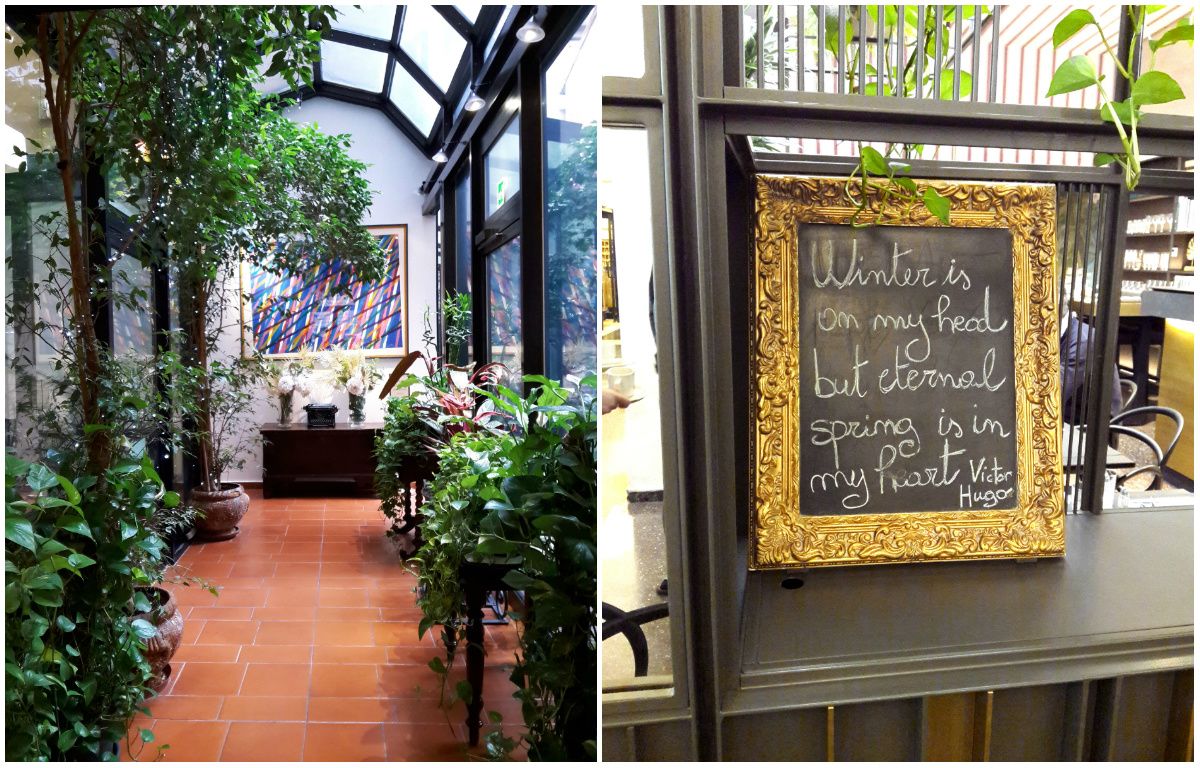 Winter is
on my head
but eternal
spring is in
my heart Victor
Hugo